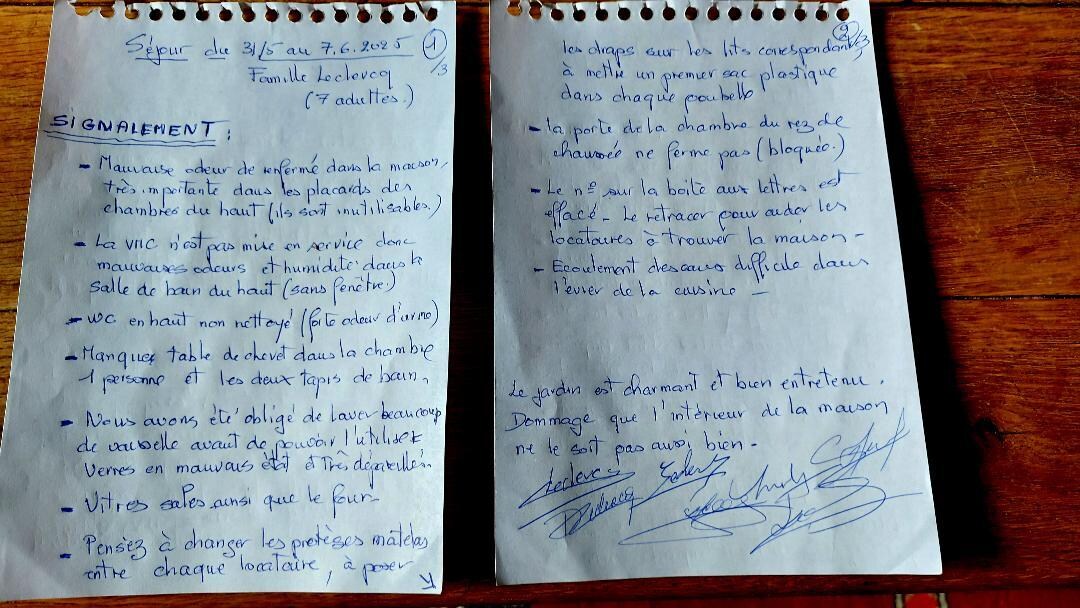 Séjour du 31/5 au 7.6.2025 1/3
Famille Leclercq
(7 adultes.)
SIGNALEMENT :
- Mauvaise odeur de renfermé dans la maison,
très importante dans les placards des
chambres du haut (ils sont inutilisables.)
- La VMC n'est pas mise en service donc
mauvaises odeurs et humidité dans la
salle de bain du haut (sans fenêtre.)
- WC en haut non nettoyé (forte odeur d'urine)
- Manques table de chevet dans la chambre
1 personne et les deux tapis de bain.
- Nous avons été obligé de laver beaucoup
de vaisselle avant de pouvoir l'utiliser
Verres en mauvais état et très dépareillés.
- Vitres sales ainsi que le four
- Pensez à changer les protèges matelas
entre chaque locataire, à poser
2/3
les draps sur les lits correspondants
à mettre un premier sac plastique
dans chaque poubelle
- la porte de la chambre du rez de
chaussée ne ferme pas (bloquée.)
- Le n° sur la boite aux lettres est
effacé - Le retracer pour aider les
locataires à trouver la maison -
- Ecoulement des eaux difficile dans
l'évier de la cuisine -
Le jardin est charmant et bien entretenu.
Dommage que l'intérieur de la maison
ne le soit pas aussi bien -
Leclercq